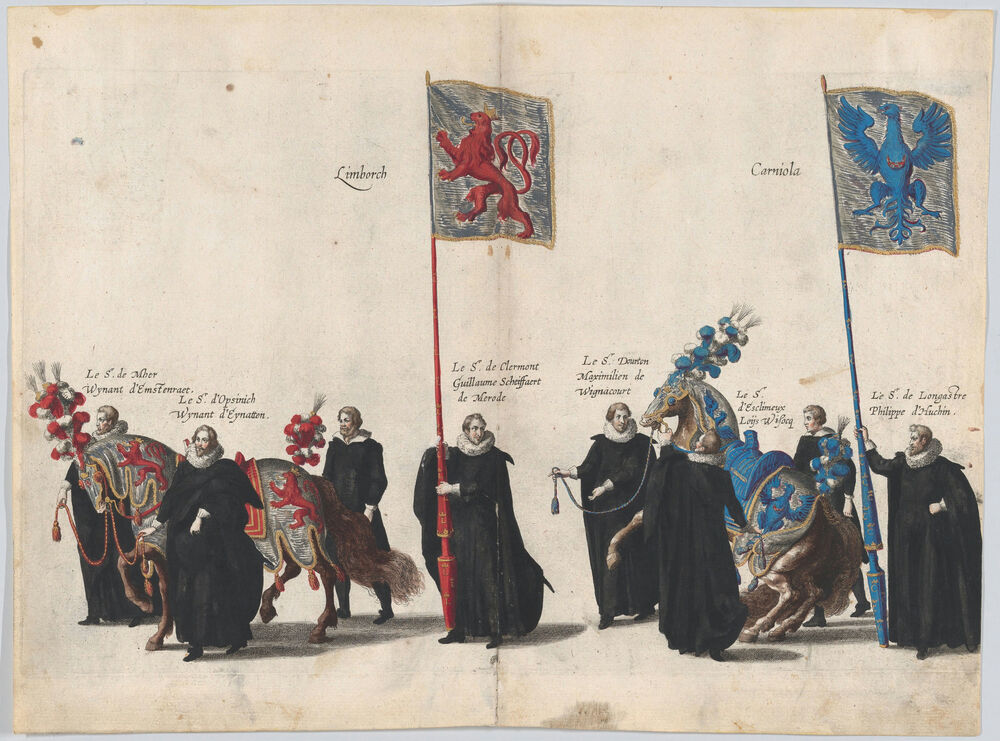 Limborch
Carniola
Le Sr. de Mher
Wynant d'Emstenraet.
Le Sr. d'Opsinich
Wynant d'Eynatten.
Le Sr. de Clermont
Guillaume Scheiffaert
de Merode
Le Sr. Dourton
Maximilien de
Wignacourt
Le Sr.
d'Esclimeux
Loijs
Le Sr. de Longastre
Philippe d'Huchin.